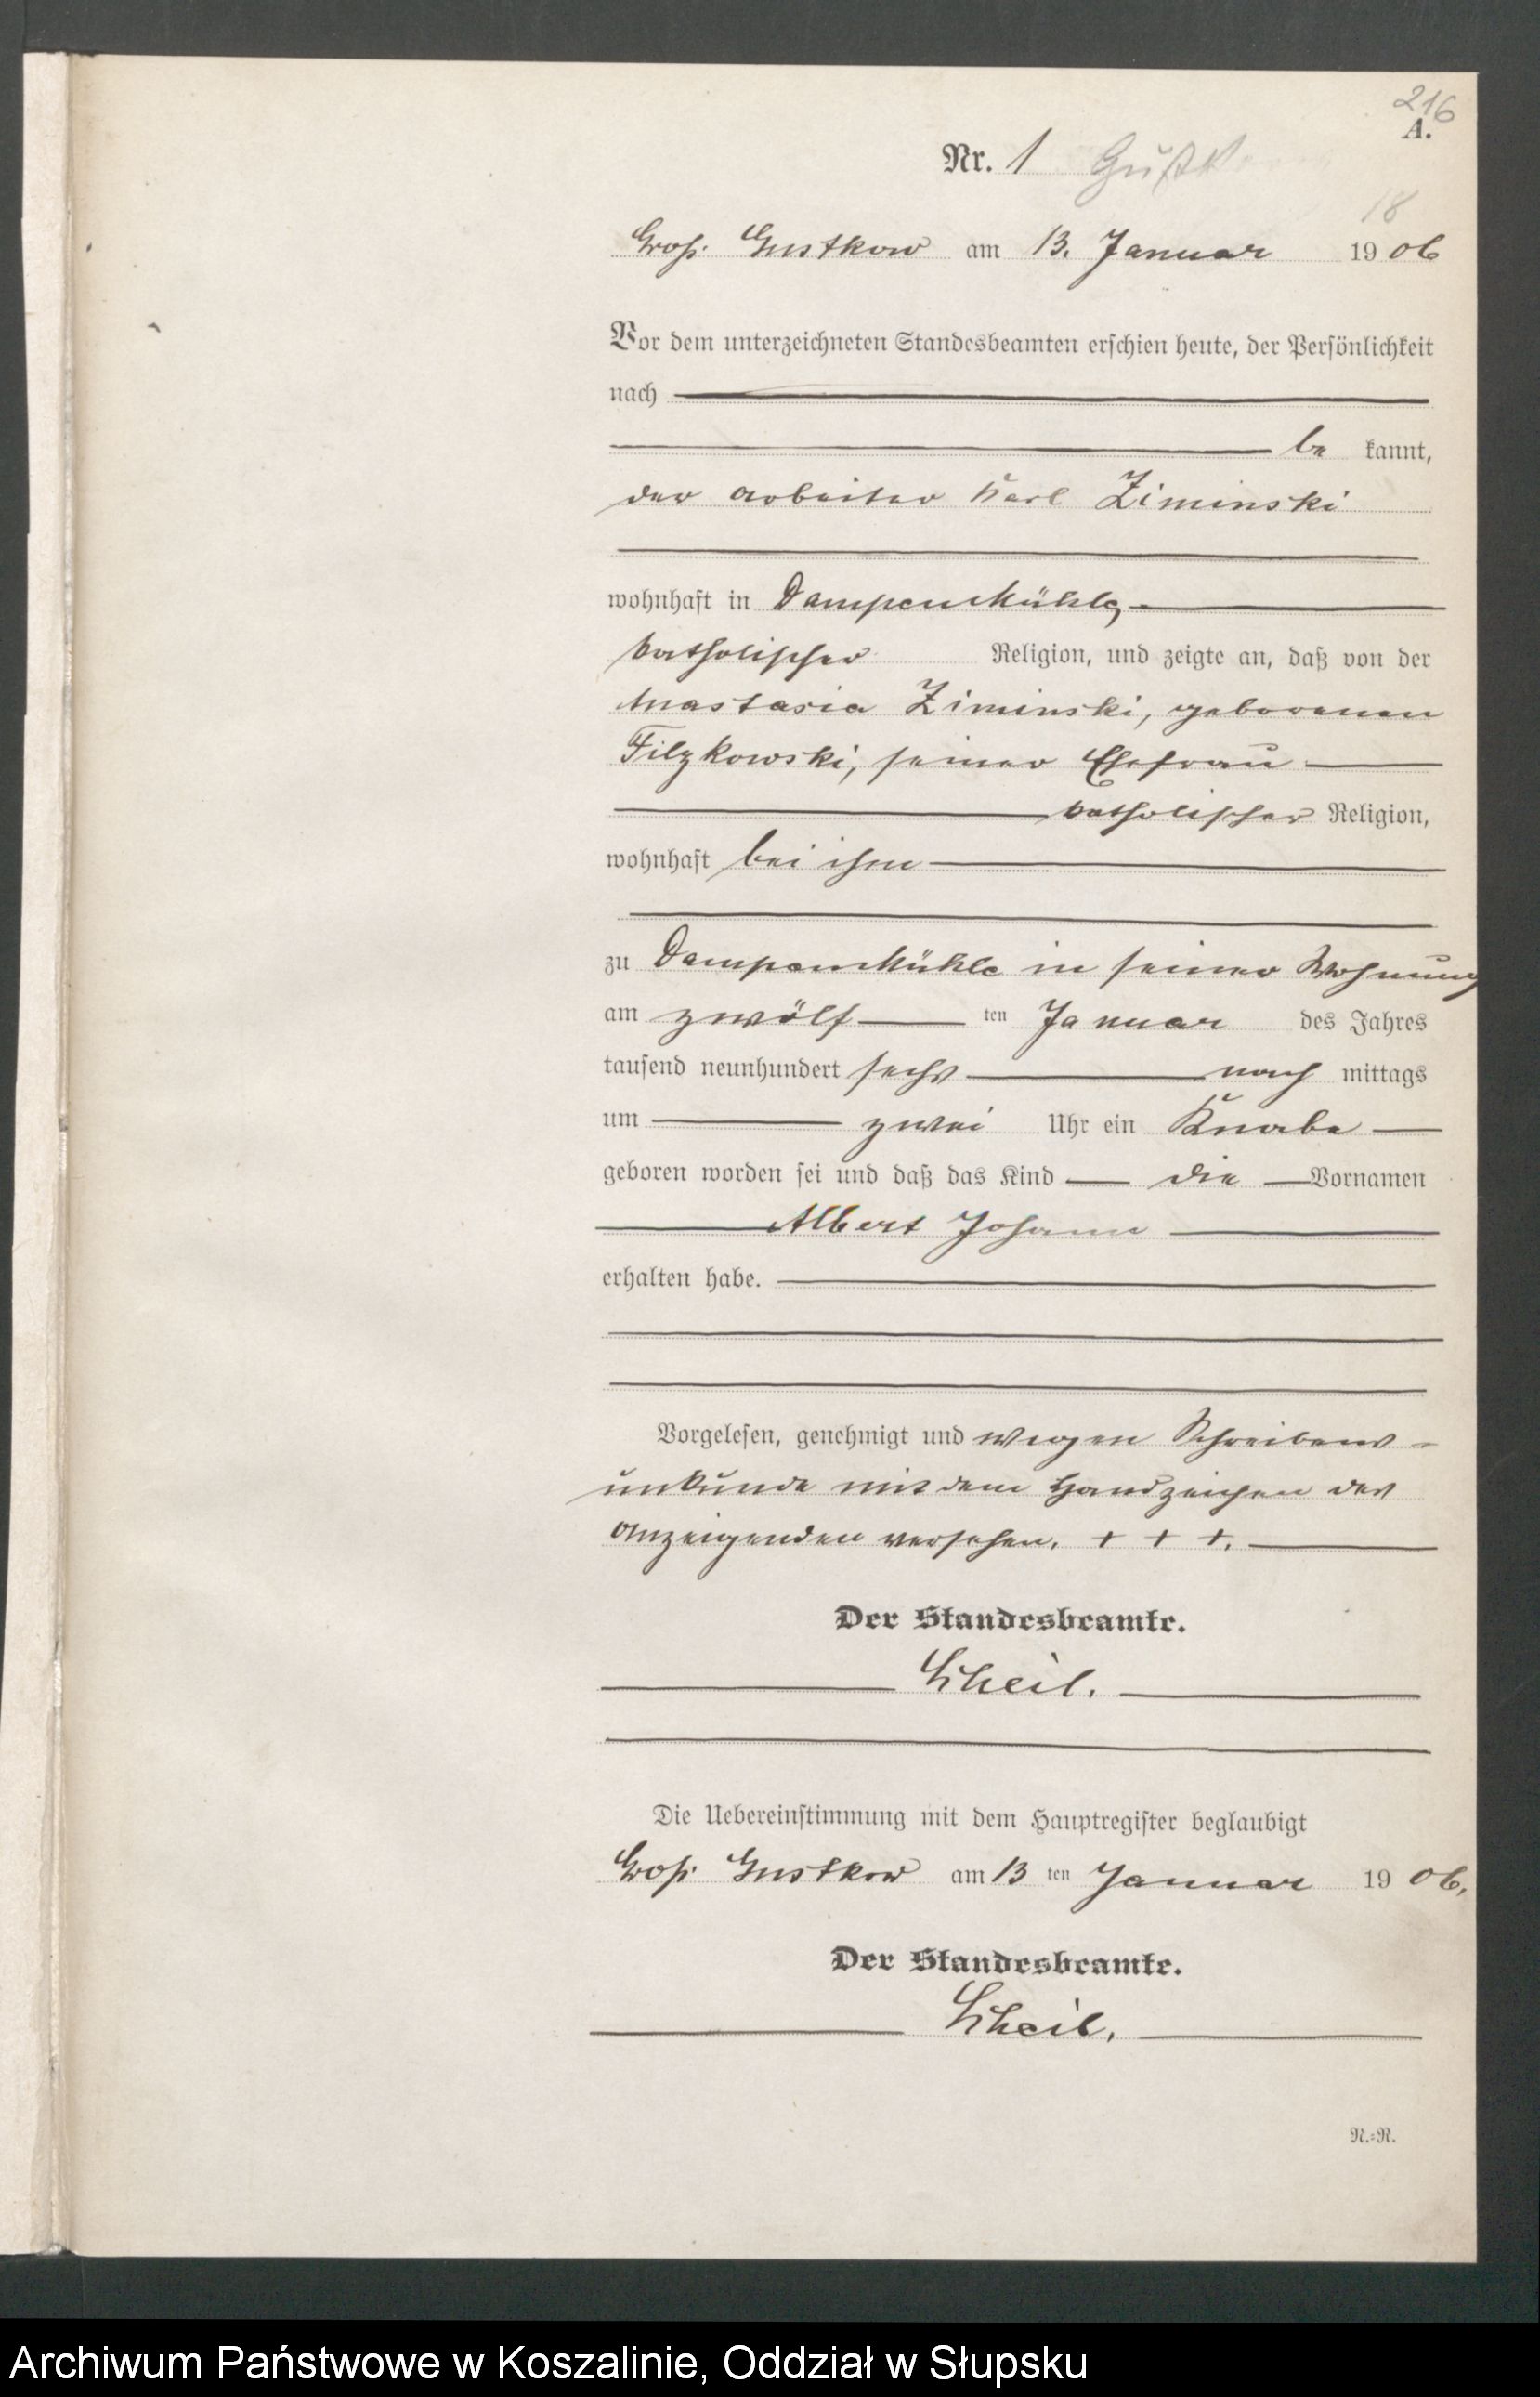 216
A.
Nr. 1
18
Groß Gustkow am 13. Januar 1906
Vor dem unterzeichneten Standesbeamten erschien heute, der Persönlichkeit
nach
be kannt,
der Arbeiter Karl Ziminski
wohnhaft in Dampenmühle,
katholischer Religion, und zeigte an, daß von der
Anastasia Ziminski, geborenen
Filzkowski, seiner Ehefrau
katholischer Religion,
wohnhaft bei ihm
zu Dampenmühle in seiner Wohnung
am zwölf ten Januar des Jahres
tausend neunhundert sechs nach mittags
um zwei Uhr ein Knabe
geboren worden sei und daß das Kind die Vornamen
Albert Johann
erhalten habe.
Vorgelesen, genehmigt und wegen Schreibens-
unkunde mit dem Handzeichen des
Anzeigenden versehen. + + +.
Der Standesbeamte.
Scheil.
Die Uebereinstimmung mit dem Hauptregister beglaubigt
Groß Gustkow am 13 ten Januar 1906.
Der Standesbeamte.
Scheil.
N.=R.
Archiwum Państwowe w Koszalinie, Oddział w Słupsku